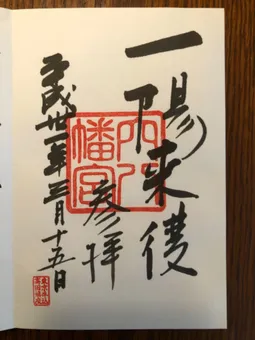 一陽来復
参拝
穴八
幡宮
平成卅一年三月十五日